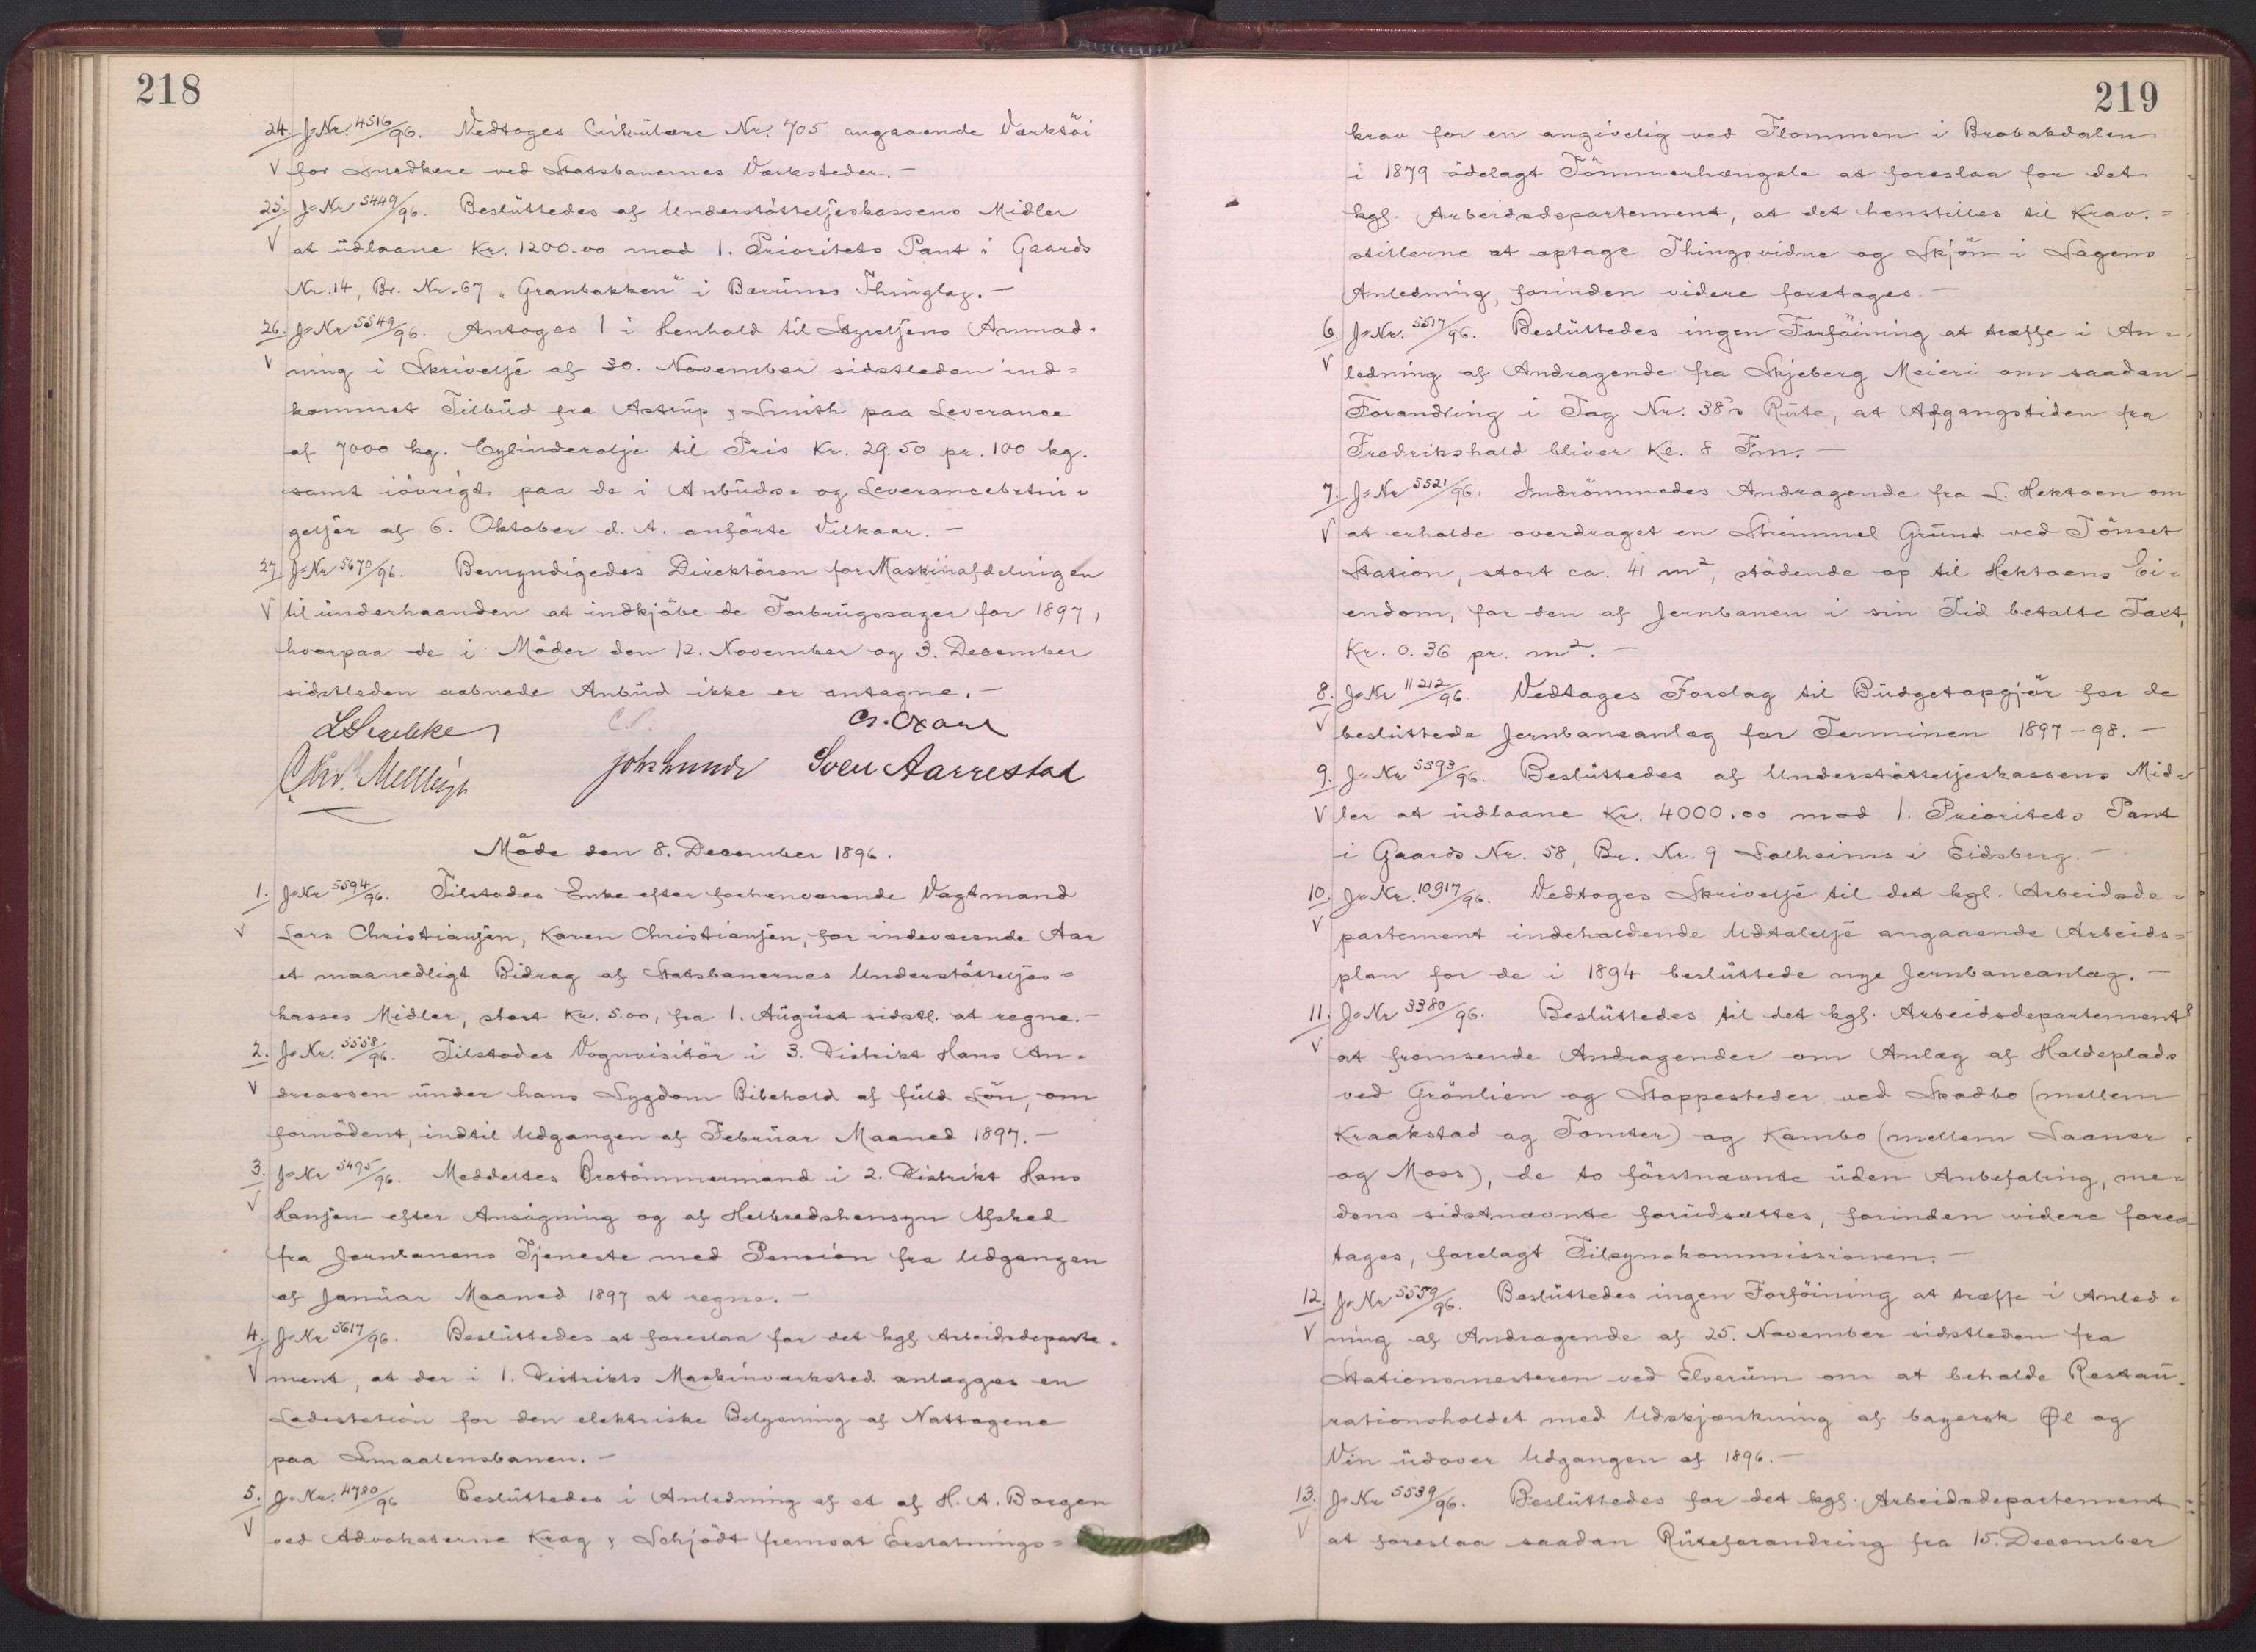 218
24. J-Nr. 4516/96. Vedtoges Cirkulære Nr. 705 angaaende Værktöi
V for Snedkere ved Statsbanernes Værksteder. —
25. J-Nr 5449/96. Besluttedes af Understöttelseskassens Midler
V at udlaane Kr. 1200.00 mod 1. Prioritets Pant i Gaards
Nr. 14, Br. Nr. 67 „Granbakken" i Bærums Thinglag. —
26. J-Nr 5549/96. Antoges i Henhold til Styrelsens Anmod-
V ning i Skrivelse af 30. November sidstleden ind=
kommet Tilbud fra Astrup & Smith paa Leverance
af 7000 kg. Cylinderolje til Pris Kr. 29.50 pr. 100 kg.
samt iövrigt paa de i Anbuds- og Leverancebetin-
gelser af 6. Oktober d. A. anförte Vilkaar. —
27. J-Nr 5670/96. Bemyndigedes Direktören for Maskinafdelingen
V til underhaanden at indkjöbe de Forbrugssager for 1897,
hvorpaa de i Möder den 12. November og 3. December
sidstleden aabnede Anbud ikke er antagne. —
Joh. Lunde Sven Aarrestad
Möde den 8. December 1896.
1. J-Nr 5594/96. Tilstodes Enke efter forhenværende Vagtmand
V Lars Christiansen, Karen Christiansen, for indeværende Aar
et maanedligt Bidrag af Statsbanernes Understöttelses=
kasses Midler, stort Kr. 5.00, fra 1. August sidstl. at regne. —
2. J-Nr. 5558/96. Tilstodes Vognvisitör i 3. Distrikt Hans An-
V dreassen under hans Sygdom Bibehold af fuld Lön, om
fornödent, indtil Udgangen af Februar Maaned 1897. —
3. J-Nr 5495/96. Meddeltes Brotömmermand i 2. Distrikt Hans
V Hansen efter Ansögning og af Helbredshensyn Afsked
fra Jernbanens Tjeneste med Pension fra Udgangen
af Januar Maaned 1897 at regne. —
4. J-Nr 5617/96. Besluttedes at foreslaa for det kgl. Arbeidsdeparte-
V ment, at der i 1. Distrikts Maskinværksted anlægges en
Ladestation for den elektriske Belysning af Nattogene
paa Smaalensbanen. —
5. J-Nr. 4780/96 Besluttedes i Anledning af et af H. A. Borgen
V ved Advokaterne Krag & Schjödt fremsat Erstatnings=
219
krav for en angivelig ved Flommen i Brobakdalen
i 1879 ödelagt Tömmerhængsle at foreslaa for det
kgl. Arbeidsdepartement, at det henstilles til Krav-=
stillerne at optage Thingsvidne og Skjön i Sagens
Anledning, forinden videre foretages. —
6. J-Nr. 5517/96. Besluttedes ingen Forföining at træffe i An-
V ledning af Andragende fra Skjeberg Meieri om saadan
Forandring i Tog Nr. 38's Rute, at Afgangstiden fra
Fredrikshald bliver Kl. 8 Fm. —
7. J-Nr 5521/96. Indrömmedes Andragende fra L. Hektoen om
V at erholde overdraget en Strimmel Grund ved Tönset
Station, stort ca. 41 m², stödende op til Hektoens Ei-
endom, for den af Jernbanen i sin Tid betalte Taxt,
Kr. 0.36 pr. m². —
8. J-Nr 11212/96. Vedtoges Forslag til Budgetopgjör for de
V besluttede Jernbaneanlæg for Terminen 1897-98. —
9. J-Nr 5593/96. Besluttedes af Understöttelseskassens Mid-
V ler at udlaane Kr. 4000.00 mod 1. Prioritets Pant
i Gaards Nr. 58, Br. Nr. 9 Solheim i Eidsberg. —
10. J-Nr. 10917/96. Vedtoges Skrivelse til det kgl. Arbeidsde-
V partement indeholdende Udtalelse angaaende Arbeids=
plan for de i 1894 besluttede nye Jernbaneanlæg. —
11. J-Nr 3380/96. Besluttedes til det kgl. Arbeidsdepartement
V at fremsende Andragender om Anlæg af Holdeplads
ved Grönlien og Stoppesteder ved Skodbo (mellem
Kraakstad og Tomter) og Kambo (mellem Saaner
og Moss), de to förstnævnte uden Anbefaling, me-
dens sidstnævnte forudsættes, forinden videre fore-
tages, forelagt Tilsynskommissionen. —
12. J-Nr 5559/96. Besluttedes ingen Forföining at træffe i Anled-
V ning af Andragende af 25. November sidstleden fra
Stationsmesteren ved Elverum om at beholde Restau-
rationsholdet med Udskjænkning af bayersk Øl og
Vin udover Udgangen af 1896. —
13. J-Nr 5539/96. Besluttedes for det kgl. Arbeidsdepartement
V at foreslaa saadan Ruteforandring fra 15. December